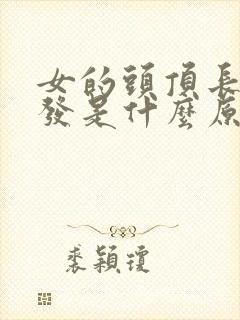 女的頭頂長
發是什麼原
裘穎瓊